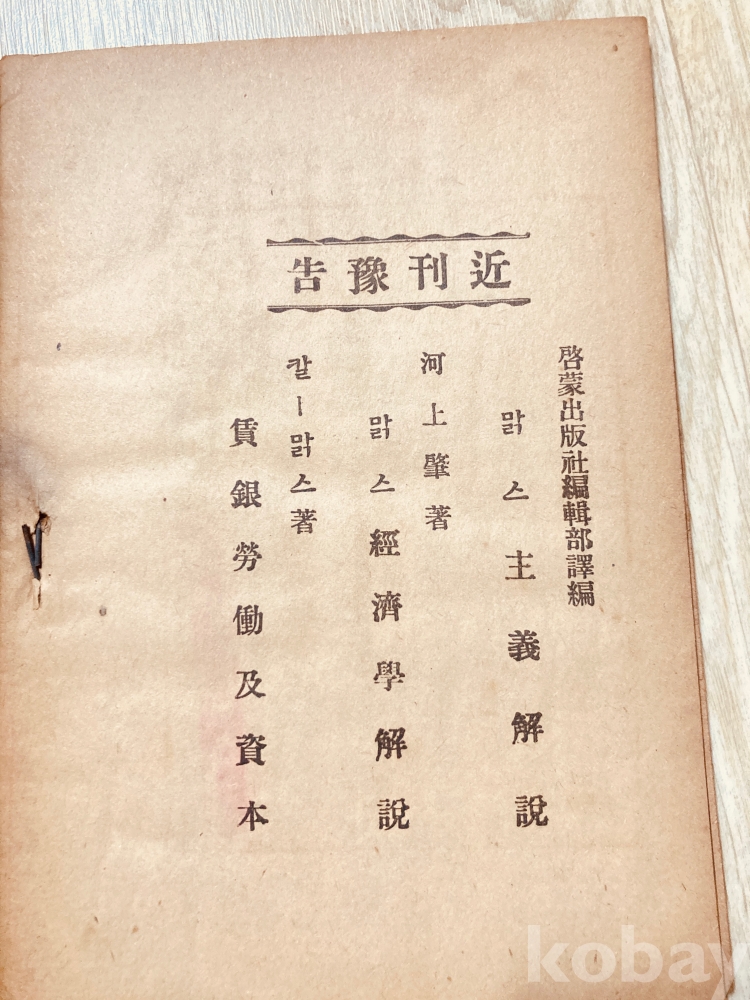 近刊豫告
啓蒙出版社編輯部譯編
맑스主義解說
河上肇著
맑스經濟學解說
칼ー맑스著
賃銀勞働及資本
kobay